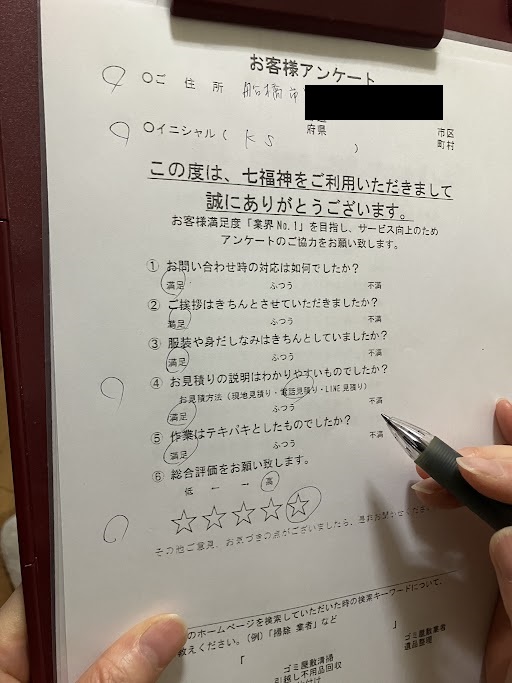 お客様アンケート
〇ご 住 所 船橋市
府県 市区
町村
〇イニシャル( K S )
この度は、七福神をご利用いただきまして
誠にありがとうございます。
お客様満足度「業界No.1」を目指し、サービス向上のため
アンケートのご協力をお願い致します。
① お問い合わせ時の対応は如何でしたか?
満足 ふつう 不満
② ご挨拶はきちんとさせていただきましたか?
満足 ふつう 不満
③ 服装や身だしなみはきちんとしていましたか?
満足 ふつう 不満
④ お見積りの説明はわかりやすいものでしたか?
お見積方法(現地見積り・電話見積り・LINE見積り)
満足 ふつう 不満
⑤ 作業はテキパキとしたものでしたか?
満足 ふつう 不満
⑥ 総合評価をお願い致します。
低 ← → 高
☆☆☆☆☆
その他ご意見、お気づきの点がございましたら、是非お聞かせくだ
のホームページを検索していただいた時の検索キーワードについて、
教えください。(例)「掃除 業者」など
「 」
ゴミ屋敷清掃 ゴミ屋敷業者
引越し不用品回収 遺品整理
付け